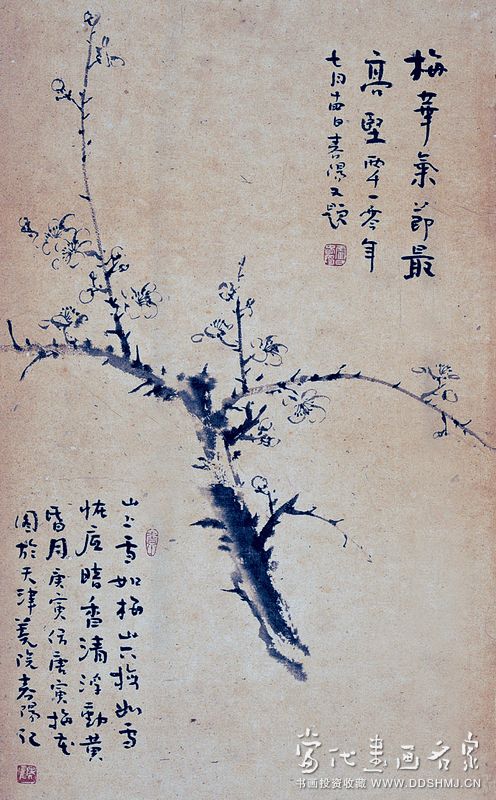 梅華氣節最
高堅两千一零年
七月日春陽又題
山上雪如梅山梅如雪
暗香清浮動黄
昏月庚寅仿唐寅梅花
圖於天津美院春陽記
当代書画名家
书画投资收藏 WWW.DDSHMJ.CN